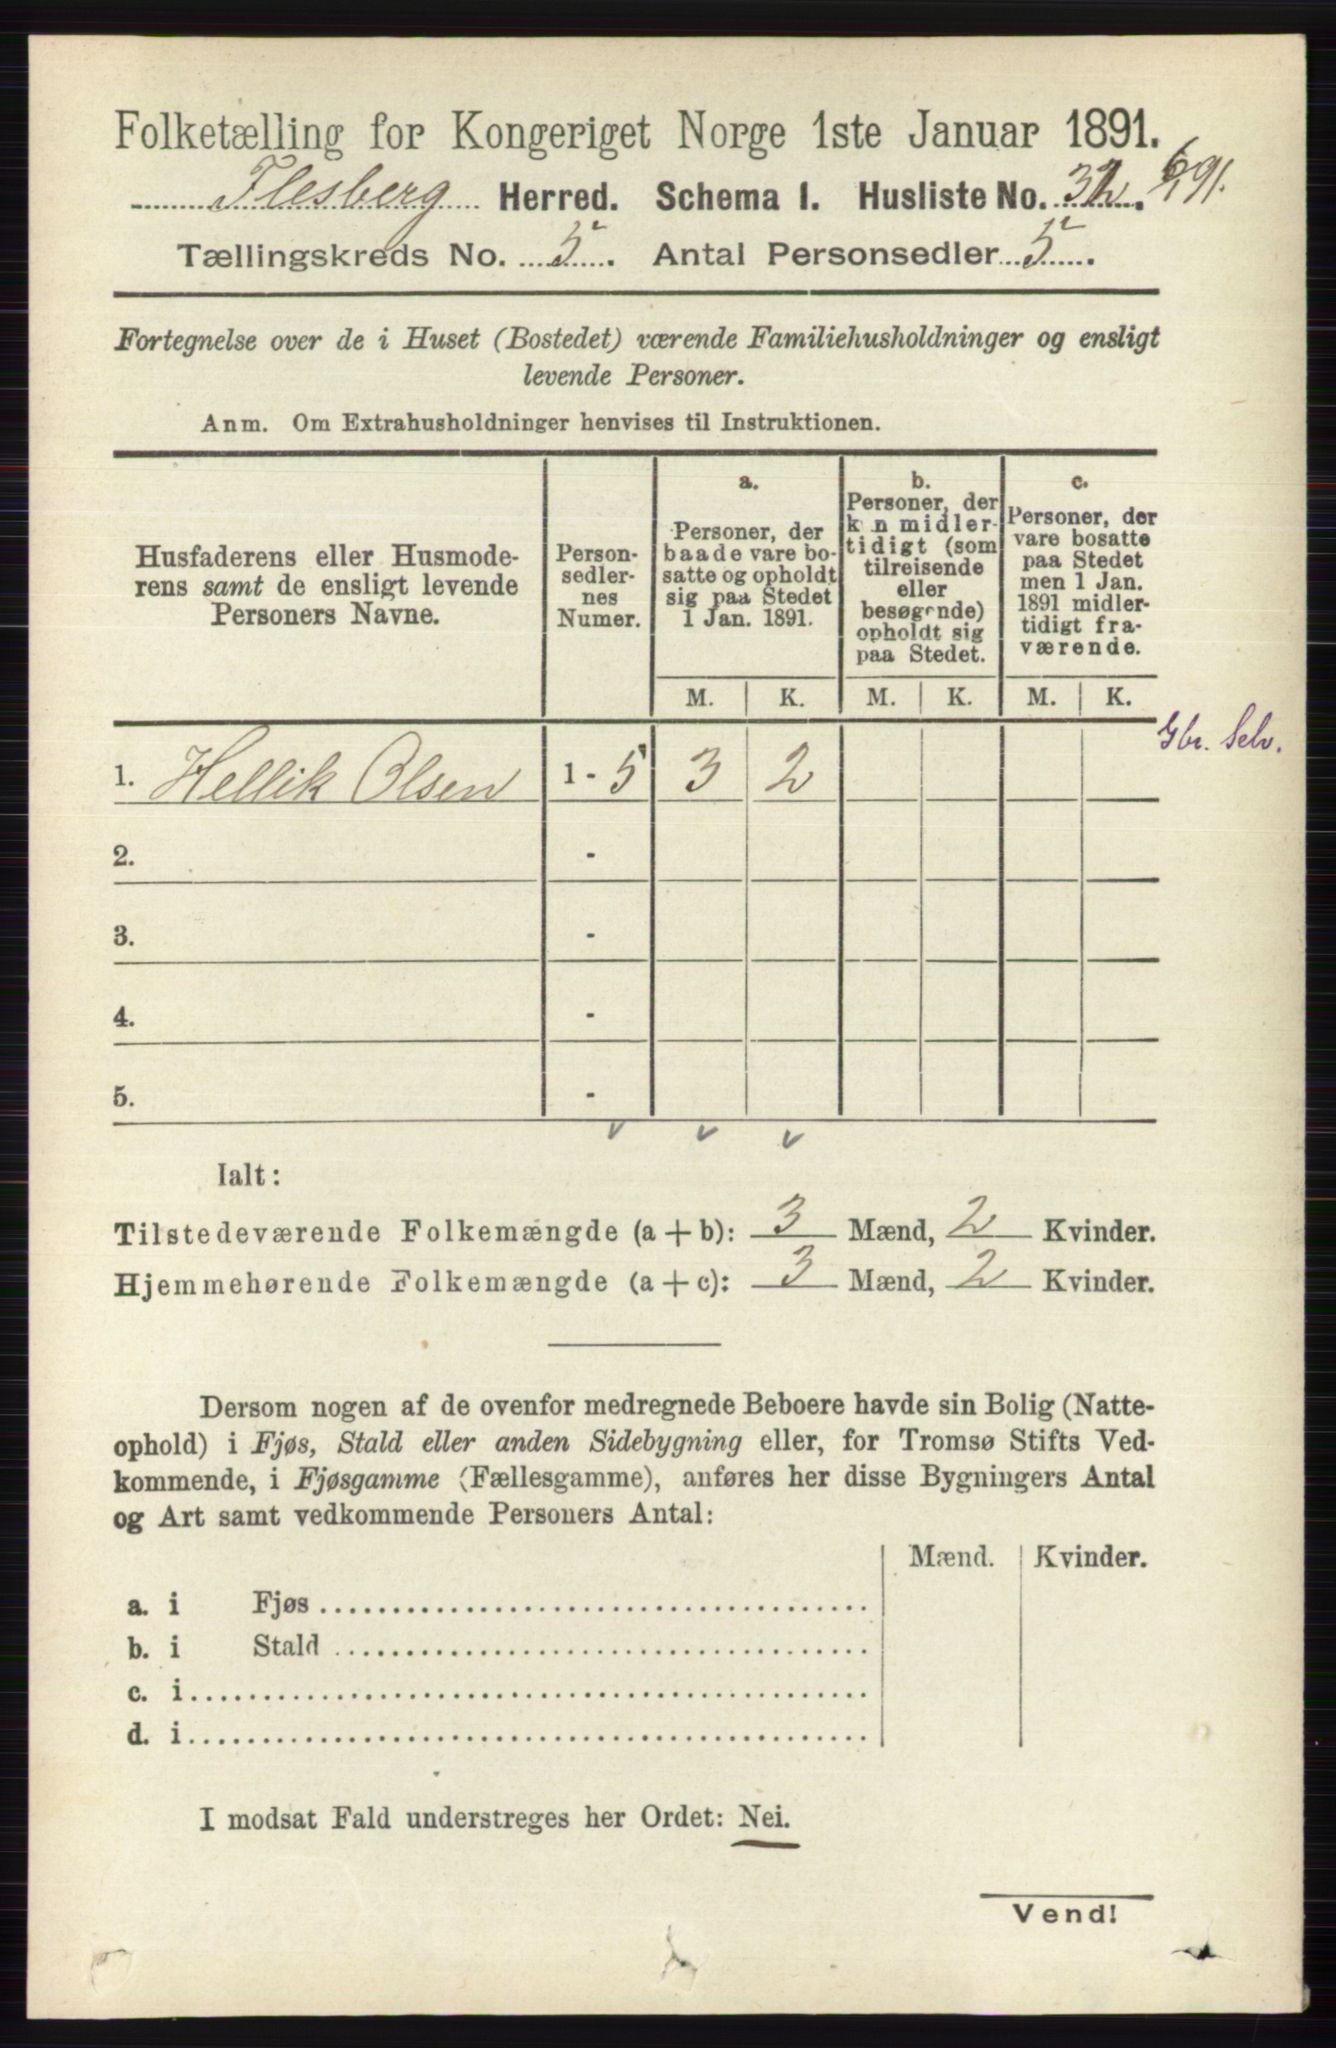 Folketælling for Kongeriget Norge 1ste Januar 1891.
Flesberg Herred. Schema 1. Husliste No. 32.
Tællingskreds No. 5. Antal Personsedler 5.
Fortegnelse over de i Huset (Bostedet) værende Familiehusholdninger og ensligt
levende Personer.
Anm. Om Extrahusholdninger henvises til Instruktionen.
Husfaderens eller Husmode-
rens samt de ensligt levende
Personers Navne.
Person-
sedler-
nes
Numer.
a.
Personer, der
baade vare bo-
satte og opholdt
sig paa Stedet
1 Jan. 1891.
b.
Personer, der
kun midler-
tidigt (som
tilreisende
eller
besøgende)
opholdt sig
paa Stedet.
c.
Personer, der
vare bosatte
paa Stedet
men 1 Jan.
1891 midler-
tidigt fra-
værende.
M. K. M. K. M. K.
Gbr. Selv.
1. Hellik Olsen 1 - 5 3 2
2. -
3. -
4. -
5. -
Ialt:
Tilstedeværende Folkemængde (a + b): 3 Mænd, 2 Kvinder.
Hjemmehørende Folkemængde (a + c): 3 Mænd, 2 Kvinder.
Dersom nogen af de ovenfor medregnede Beboere havde sin Bolig (Natte-
ophold) i Fjøs, Stald eller anden Sidebygning eller, for Tromsø Stifts Ved-
kommende, i Fjøsgamme (Fællesgamme), anføres her disse Bygningers Antal
og Art samt vedkommende Personers Antal:
Mænd. Kvinder.
a. i Fjøs
b. i Stald
c. i
d. i
I modsat Fald understreges her Ordet: Nei.
Vend!